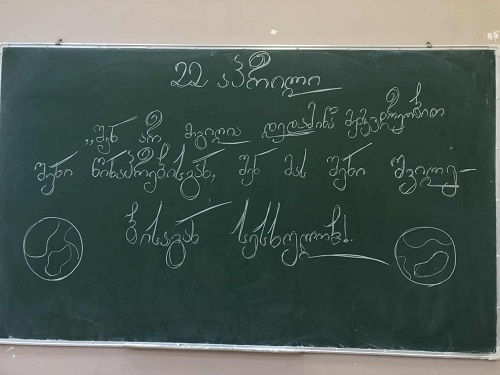 22 აპრილი
„შენ არ მიგიღია დედამიწა მემკვიდრეობით
შენი წინაპრებისგან, შენ ის შენი შვილე-
ბისაგან ისესხე!